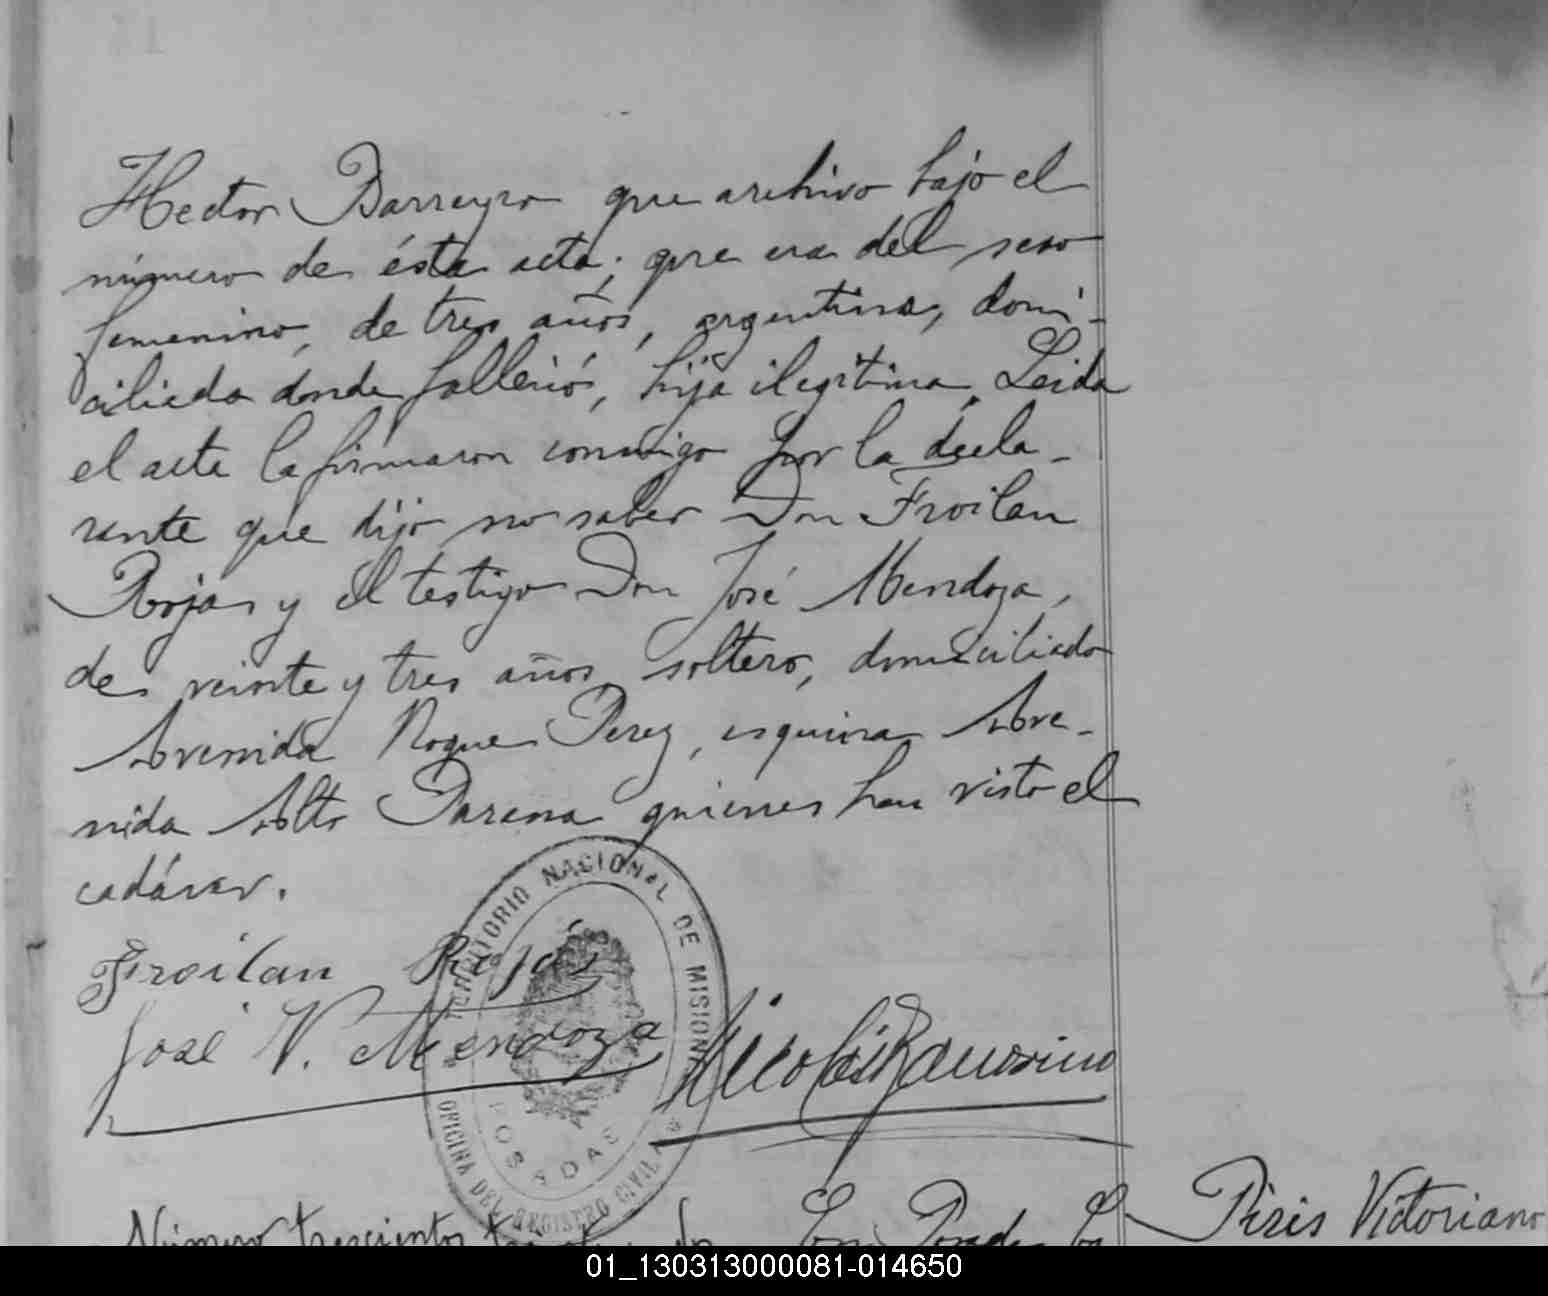 Hector Barreyro que archivo bajo el
número de ésta acta; que era del sexo
femenino, de tres años, argentina, domi-
ciliada donde falleció, hija ilegítima. Leida
el acta la firmaron conmigo por la decla-
rante que dijo no saber Don Froilan
Rojas y el testigo Don José Mendoza,
de veinte y tres años, soltero, domiciliado
Avenida Roque Perez, esquina Ave-
nida Alto Parana quienes han visto el
cadáver.
Froilan Rojas
José V. Mendoza
TERRITORIO NACIONAL DE MISIONES
POSADAS
OFICINA DEL REGISTRO CIVIL
Número trescientos
En Posadas
Piris Victoriano
01_130313000081-014650